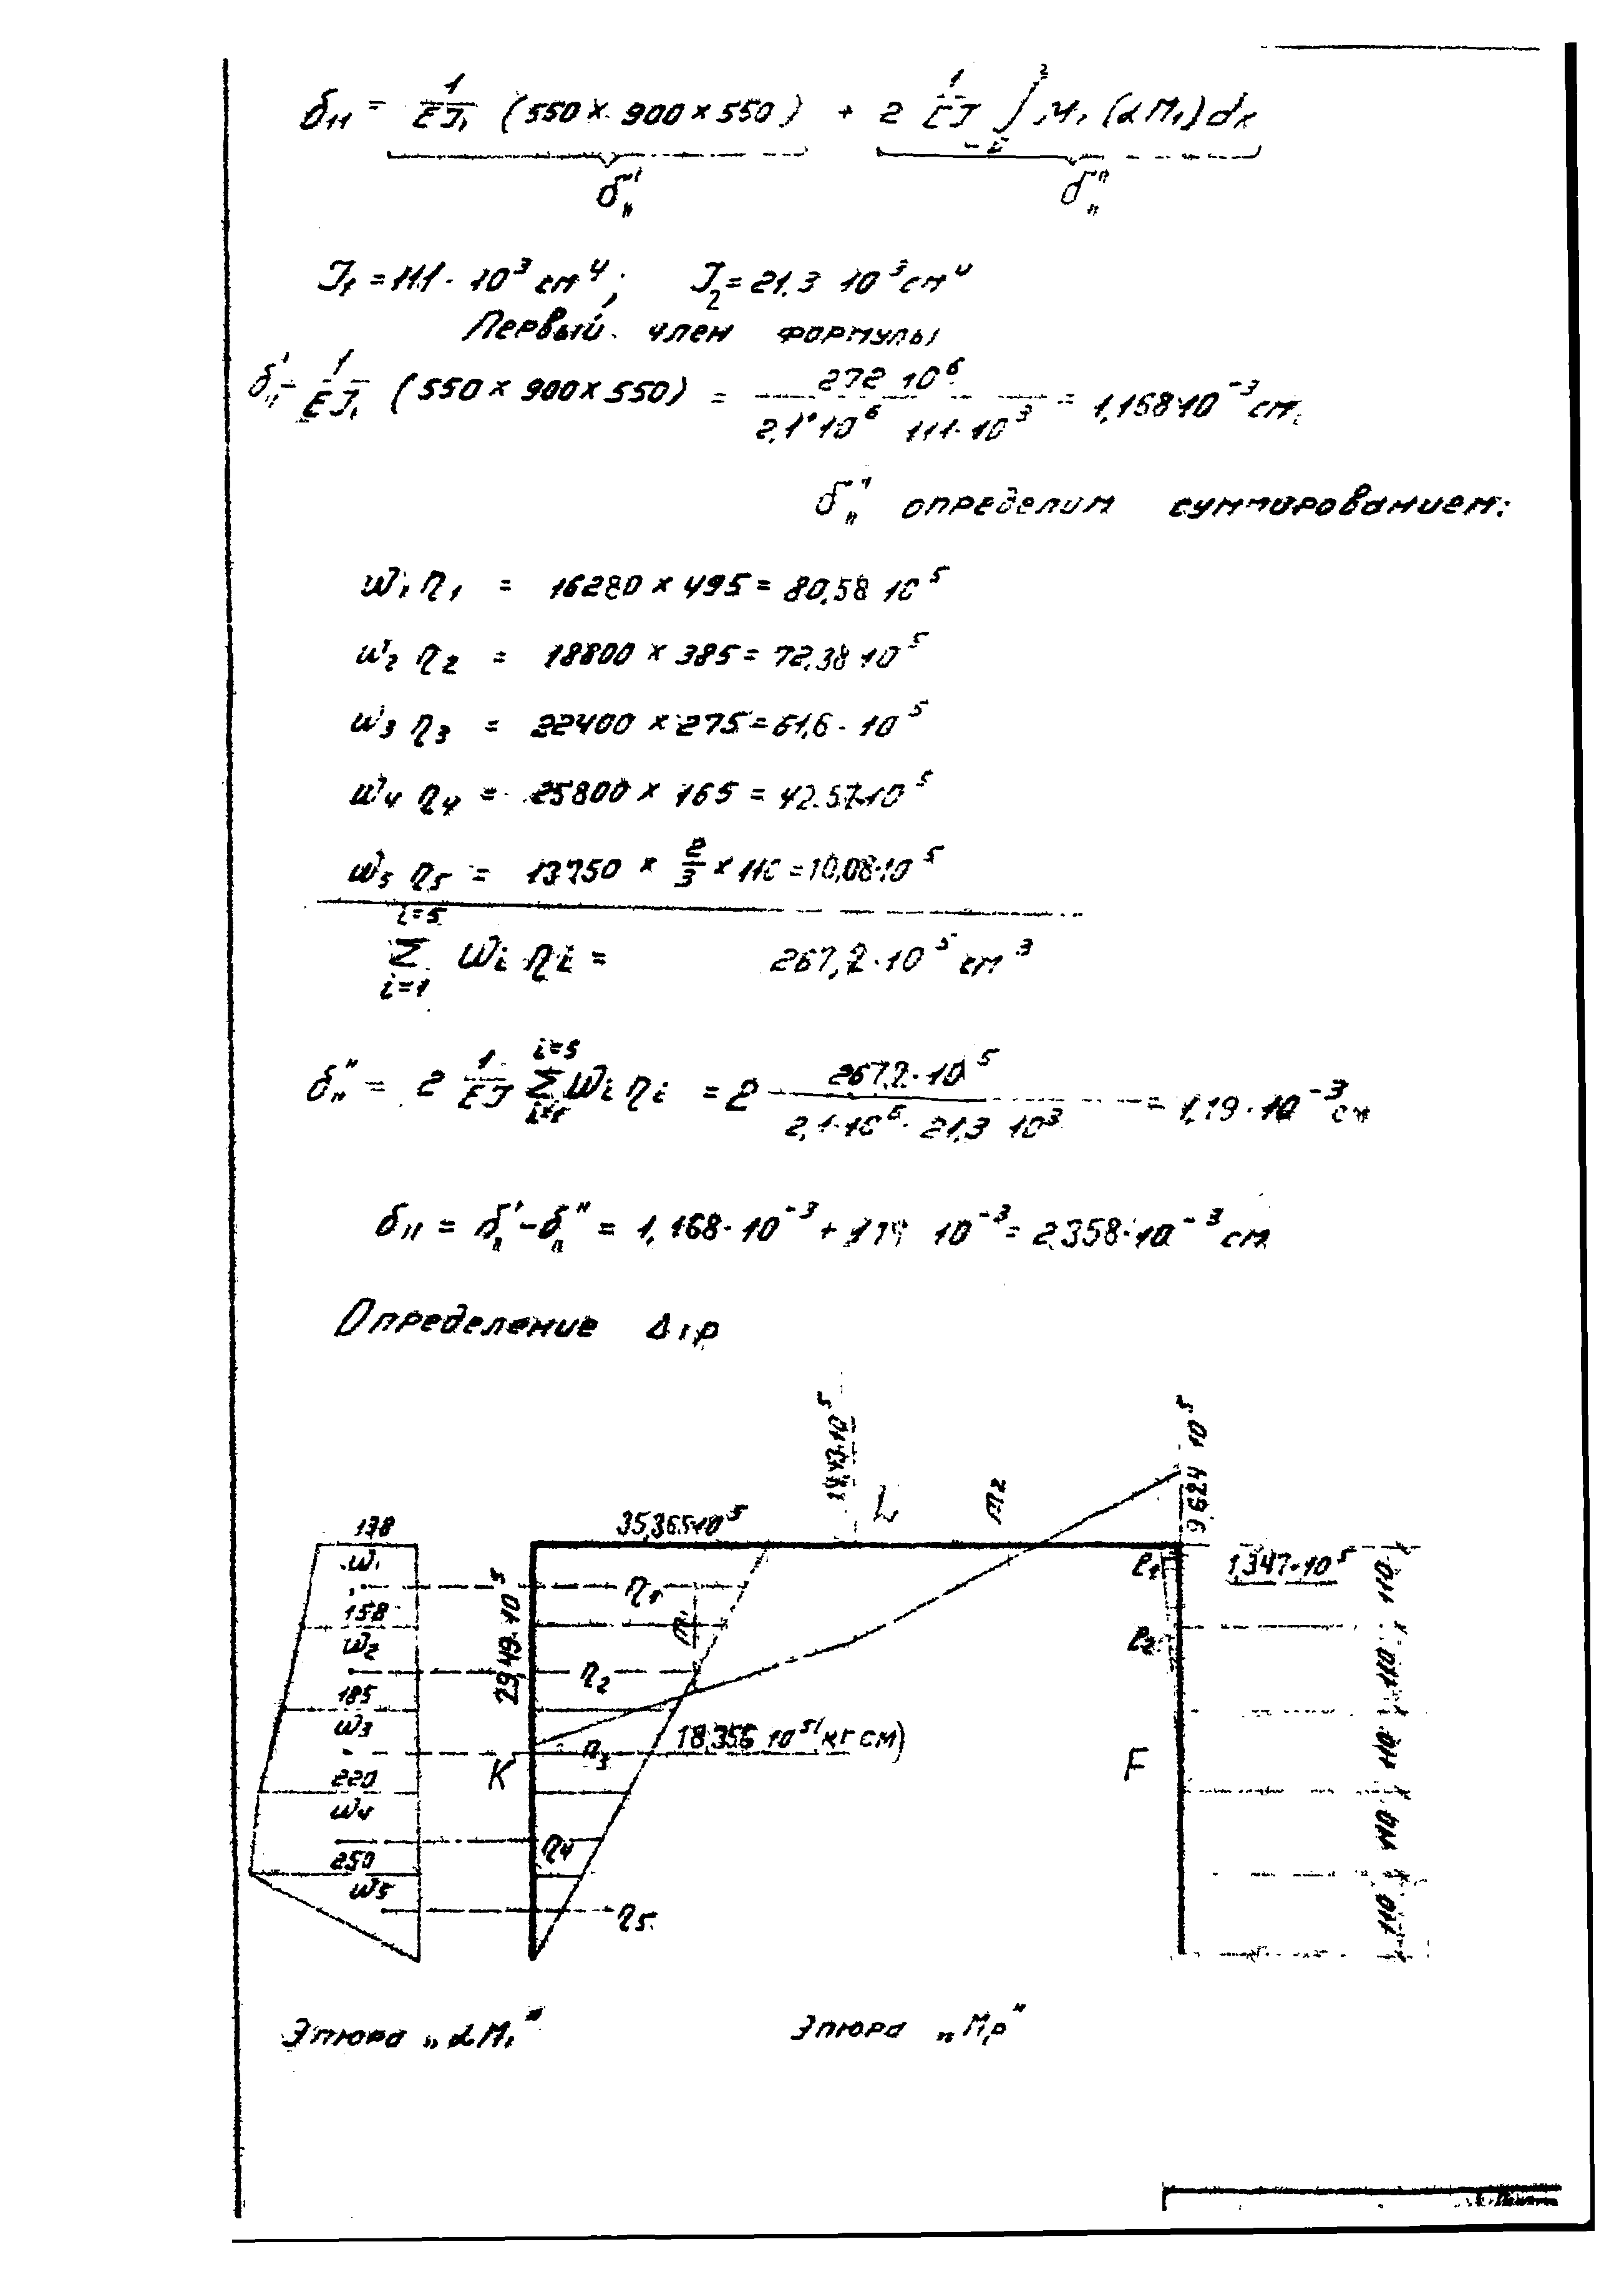 δ₁₁ = 1/EJ₁ (550 × 900 × 550) + 2 1/EJ ∫ M₁ (αM₁) dx
δ'₁₁ δ''₁₁
J₁ = 111 · 10³ см⁴; J₂ = 21,3 10³ см⁴
Первый член формулы
δ'₁₁ = 1/EJ₁ (550 × 900 × 550) = 272 10⁶ / 2,1·10⁶ 111·10³ = 1,168·10⁻³ см.
δ''₁₁ определим суммированием:
ω₁ η₁ = 16280 × 495 = 80,58 10⁵
ω₂ η₂ = 18800 × 385 = 72,38 10⁵
ω₃ η₃ = 22400 × 275 = 61,6 · 10⁵
ω₄ η₄ = 25800 × 165 = 42.57·10⁵
ω₅ η₅ = 13750 × 2/3 × 110 = 10,08·10⁵
i=5
Σ ωᵢ ηᵢ = 267,2·10⁵ см³
i=1
δ''₁₁ = 2 1/EJ Σ ωᵢ ηᵢ = 2 267,2·10⁵ / 2,1·10⁶· 21,3 10³ = 1,19·10⁻³ см
δ₁₁ = δ'₁₁ - δ''₁₁ = 1,168·10⁻³ + 1,19 10⁻³ = 2,358·10⁻³ см
Определение Δ₁р
138
35,365·10⁵
L
m₂
9,624 10⁵
ω₁
η₁
29,49·10⁵
e₁
1,347·10⁵
110
158
ω₂
η₂
e₂
110
185
ω₃
η₃
18,356 10⁵ (кг см)
K
F
110
220
ω₄
η₄
110
250
ω₅
η₅
110
Эпюра „αM₁"
Эпюра „Mр"